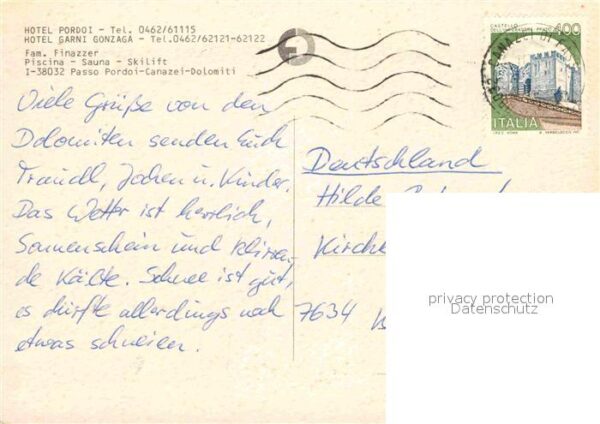 HOTEL PORDOI - Tel. 0462/61115
HOTEL GARNI GONZAGA - Tel.0462/62121-62122
Fam. Finazzer
Piscina - Sauna - Skilift
I-38032 Passo Pordoi-Canazei-Dolomiti
Viele Grüße von den
Dolomiten senden Euch
Traudl, Jochen u. Kinder.
Das Wetter ist herrlich,
Sonnenschein und klirren-
de Kälte. Schnee ist gut,
es dürfte allerdings noch
etwas schneien.
CASTELLO
400
ITALIA
Deutschland
Hilde
Kirch
7634
privacy protection
Datenschutz